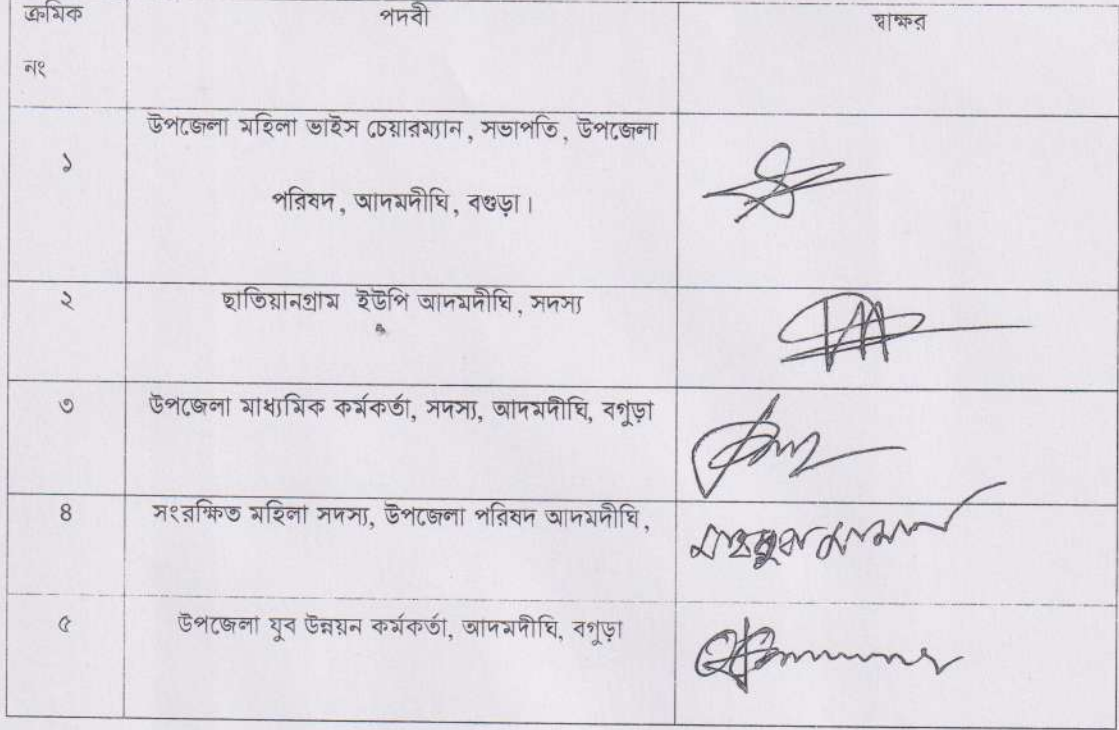 ক্রমিক পদবী স্বাক্ষর
নং
উপজেলা মহিলা ভাইস চেয়ারম্যান, সভাপতি, উপজেলা
১
পরিষদ, আদমদীঘি, বগুড়া।
২ ছাতিয়ানগ্রাম ইউপি আদমদীঘি, সদস্য
৩ উপজেলা মাধ্যমিক কর্মকর্তা, সদস্য, আদমদীঘি, বগুড়া
৪ সংরক্ষিত মহিলা সদস্য, উপজেলা পরিষদ আদমদীঘি,
৫ উপজেলা যুব উন্নয়ন কর্মকর্তা, আদমদীঘি, বগুড়া